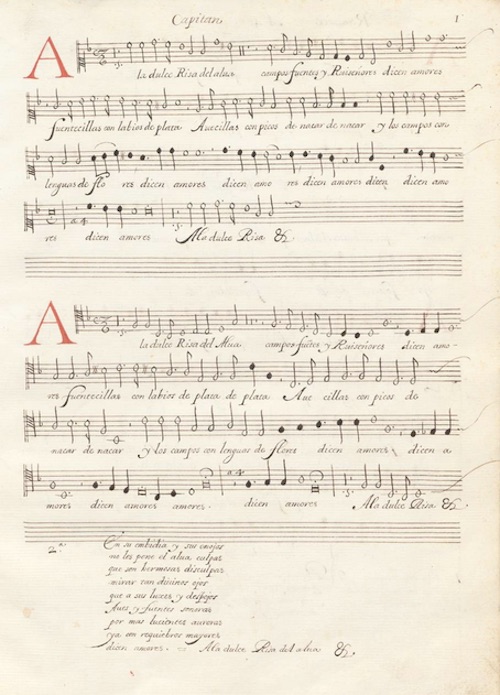 Capitan 1
A la dulce Risa del alua campos fuentes y Ruiseñores dicen amores
fuentecillas con labios de plata Auecillas con picos de nacar de nacar y los campos con
lenguas de flo res dicen amores dicen amo res dicen amores dicen dicen amo
res dicen amores A la dulce Risa &c.
A la dulce Risa del Alua campos fuētes y Ruiseñores dicen amo-
res fuentecillas con labios de plata de plata Aue cillas con picos de
nacar de nacar y los campos con lenguas de flores dicen amores dicen a
mores dicen amores amores. dicen amores A la dulce Risa &c.
2ª. En su embidia y sus enojos
no les pone el alua culpas
que son hermosas disculpas
mirar tan diuinos ojos
que a sus luces y despojos
Aues y fuentes sonoras
por mas lucientes auroras
ya con requiebros mayores
dicen amores. A la dulce Risa del alua &c.